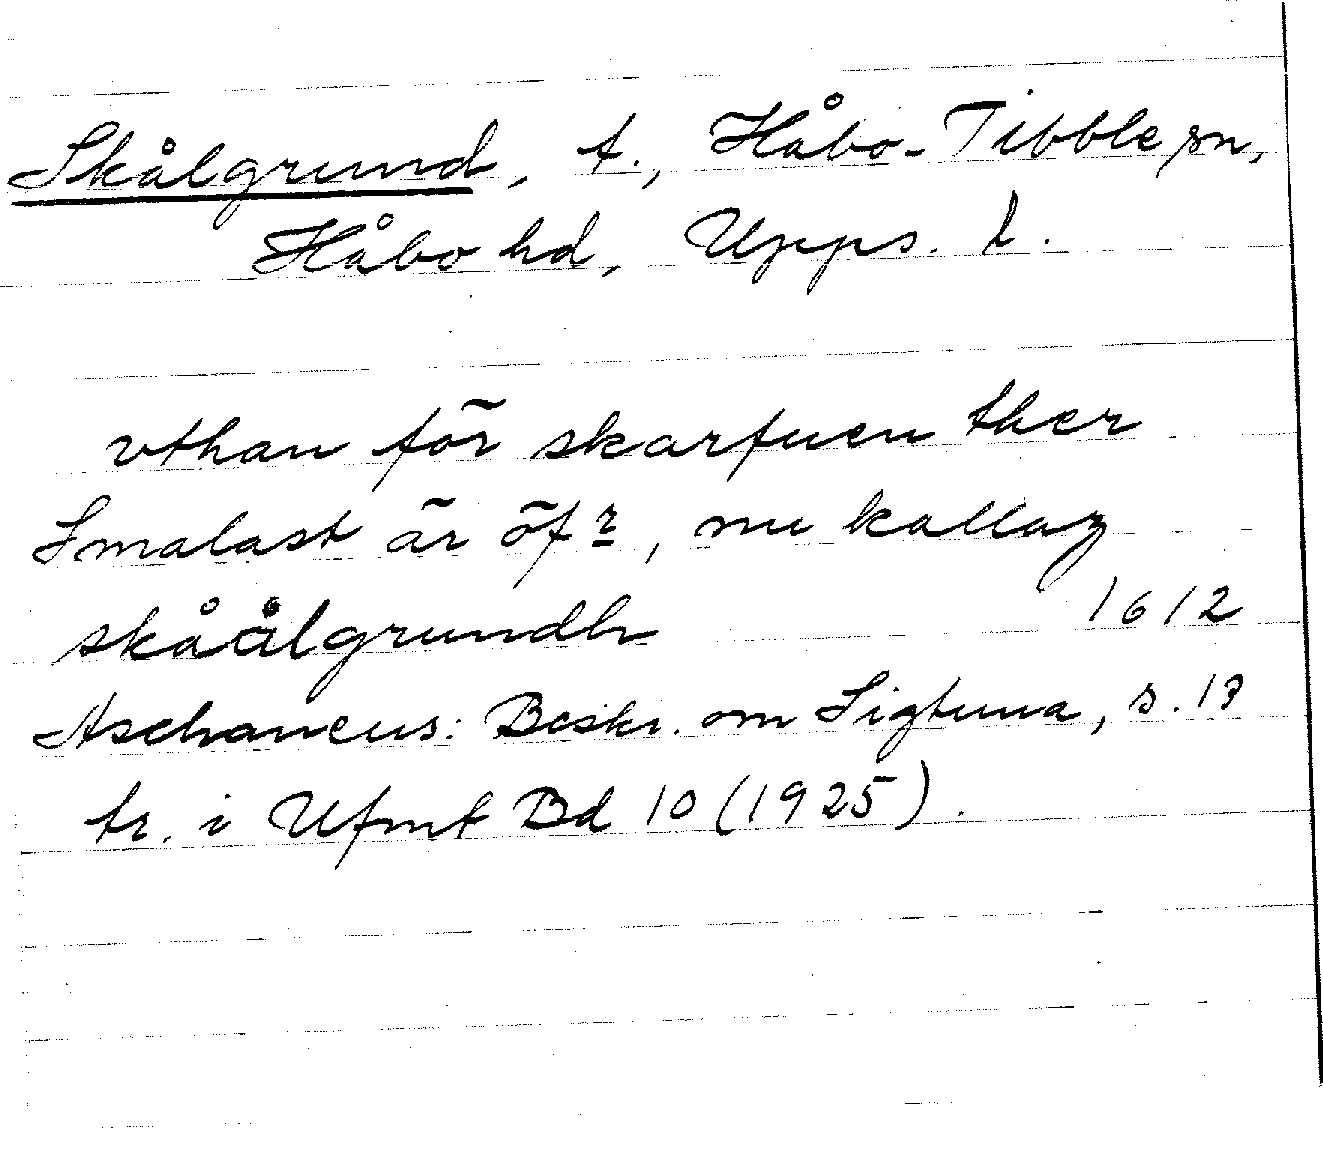 Skålgrund, t., Håbo-Tibble sn,
Håbo hd, Upps. l.
vthan för skarfuen ther
Smalast är öfr, nu kallaz
skåålgrundh 1612
Aschaneus: Beskr. om Sigtuna, s. 13
tr. i Ufmt Bd 10 (1925).